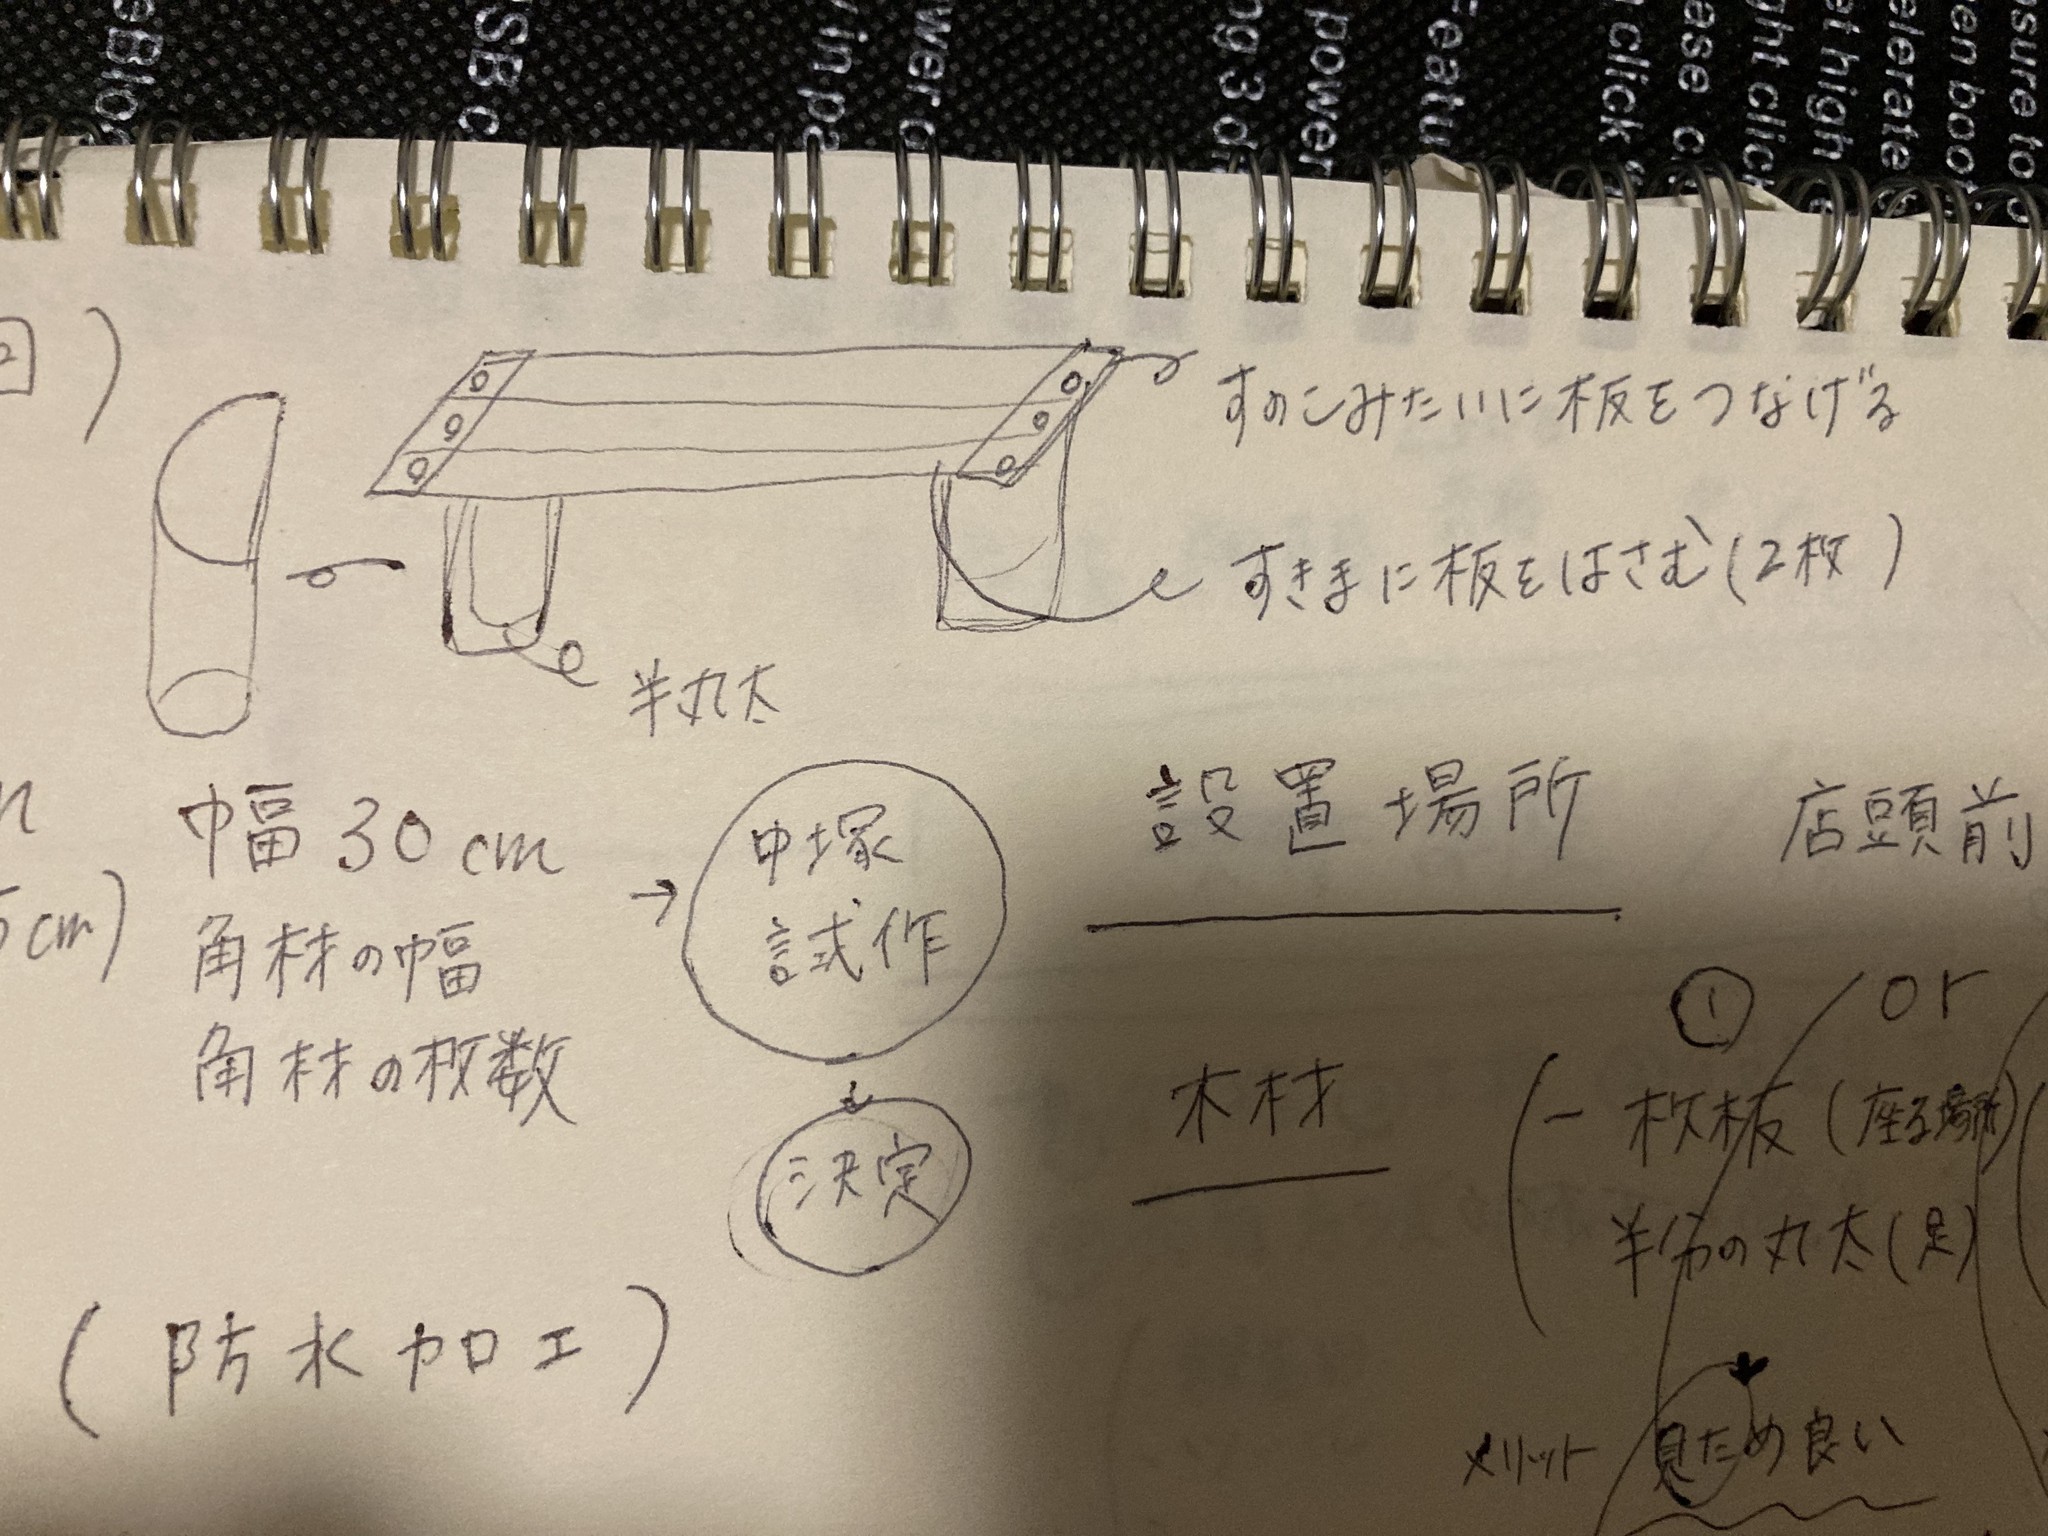 すのこみたいに板をつなげる
すきまに板をはさむ(2枚)
半丸太
幅 30 cm
角材の幅
角材の枚数
→ 中塚
試作
決定
(防水加工)
5cm)
設置場所 店頭前
① or
木材
一枚板(座る場所)
半分の丸太(足)
メリット 見ため良い
SB c
in pa
wer
ng 3 d
power
Featu
click
ese
ght clic
et high
elerate
en boo
sure to